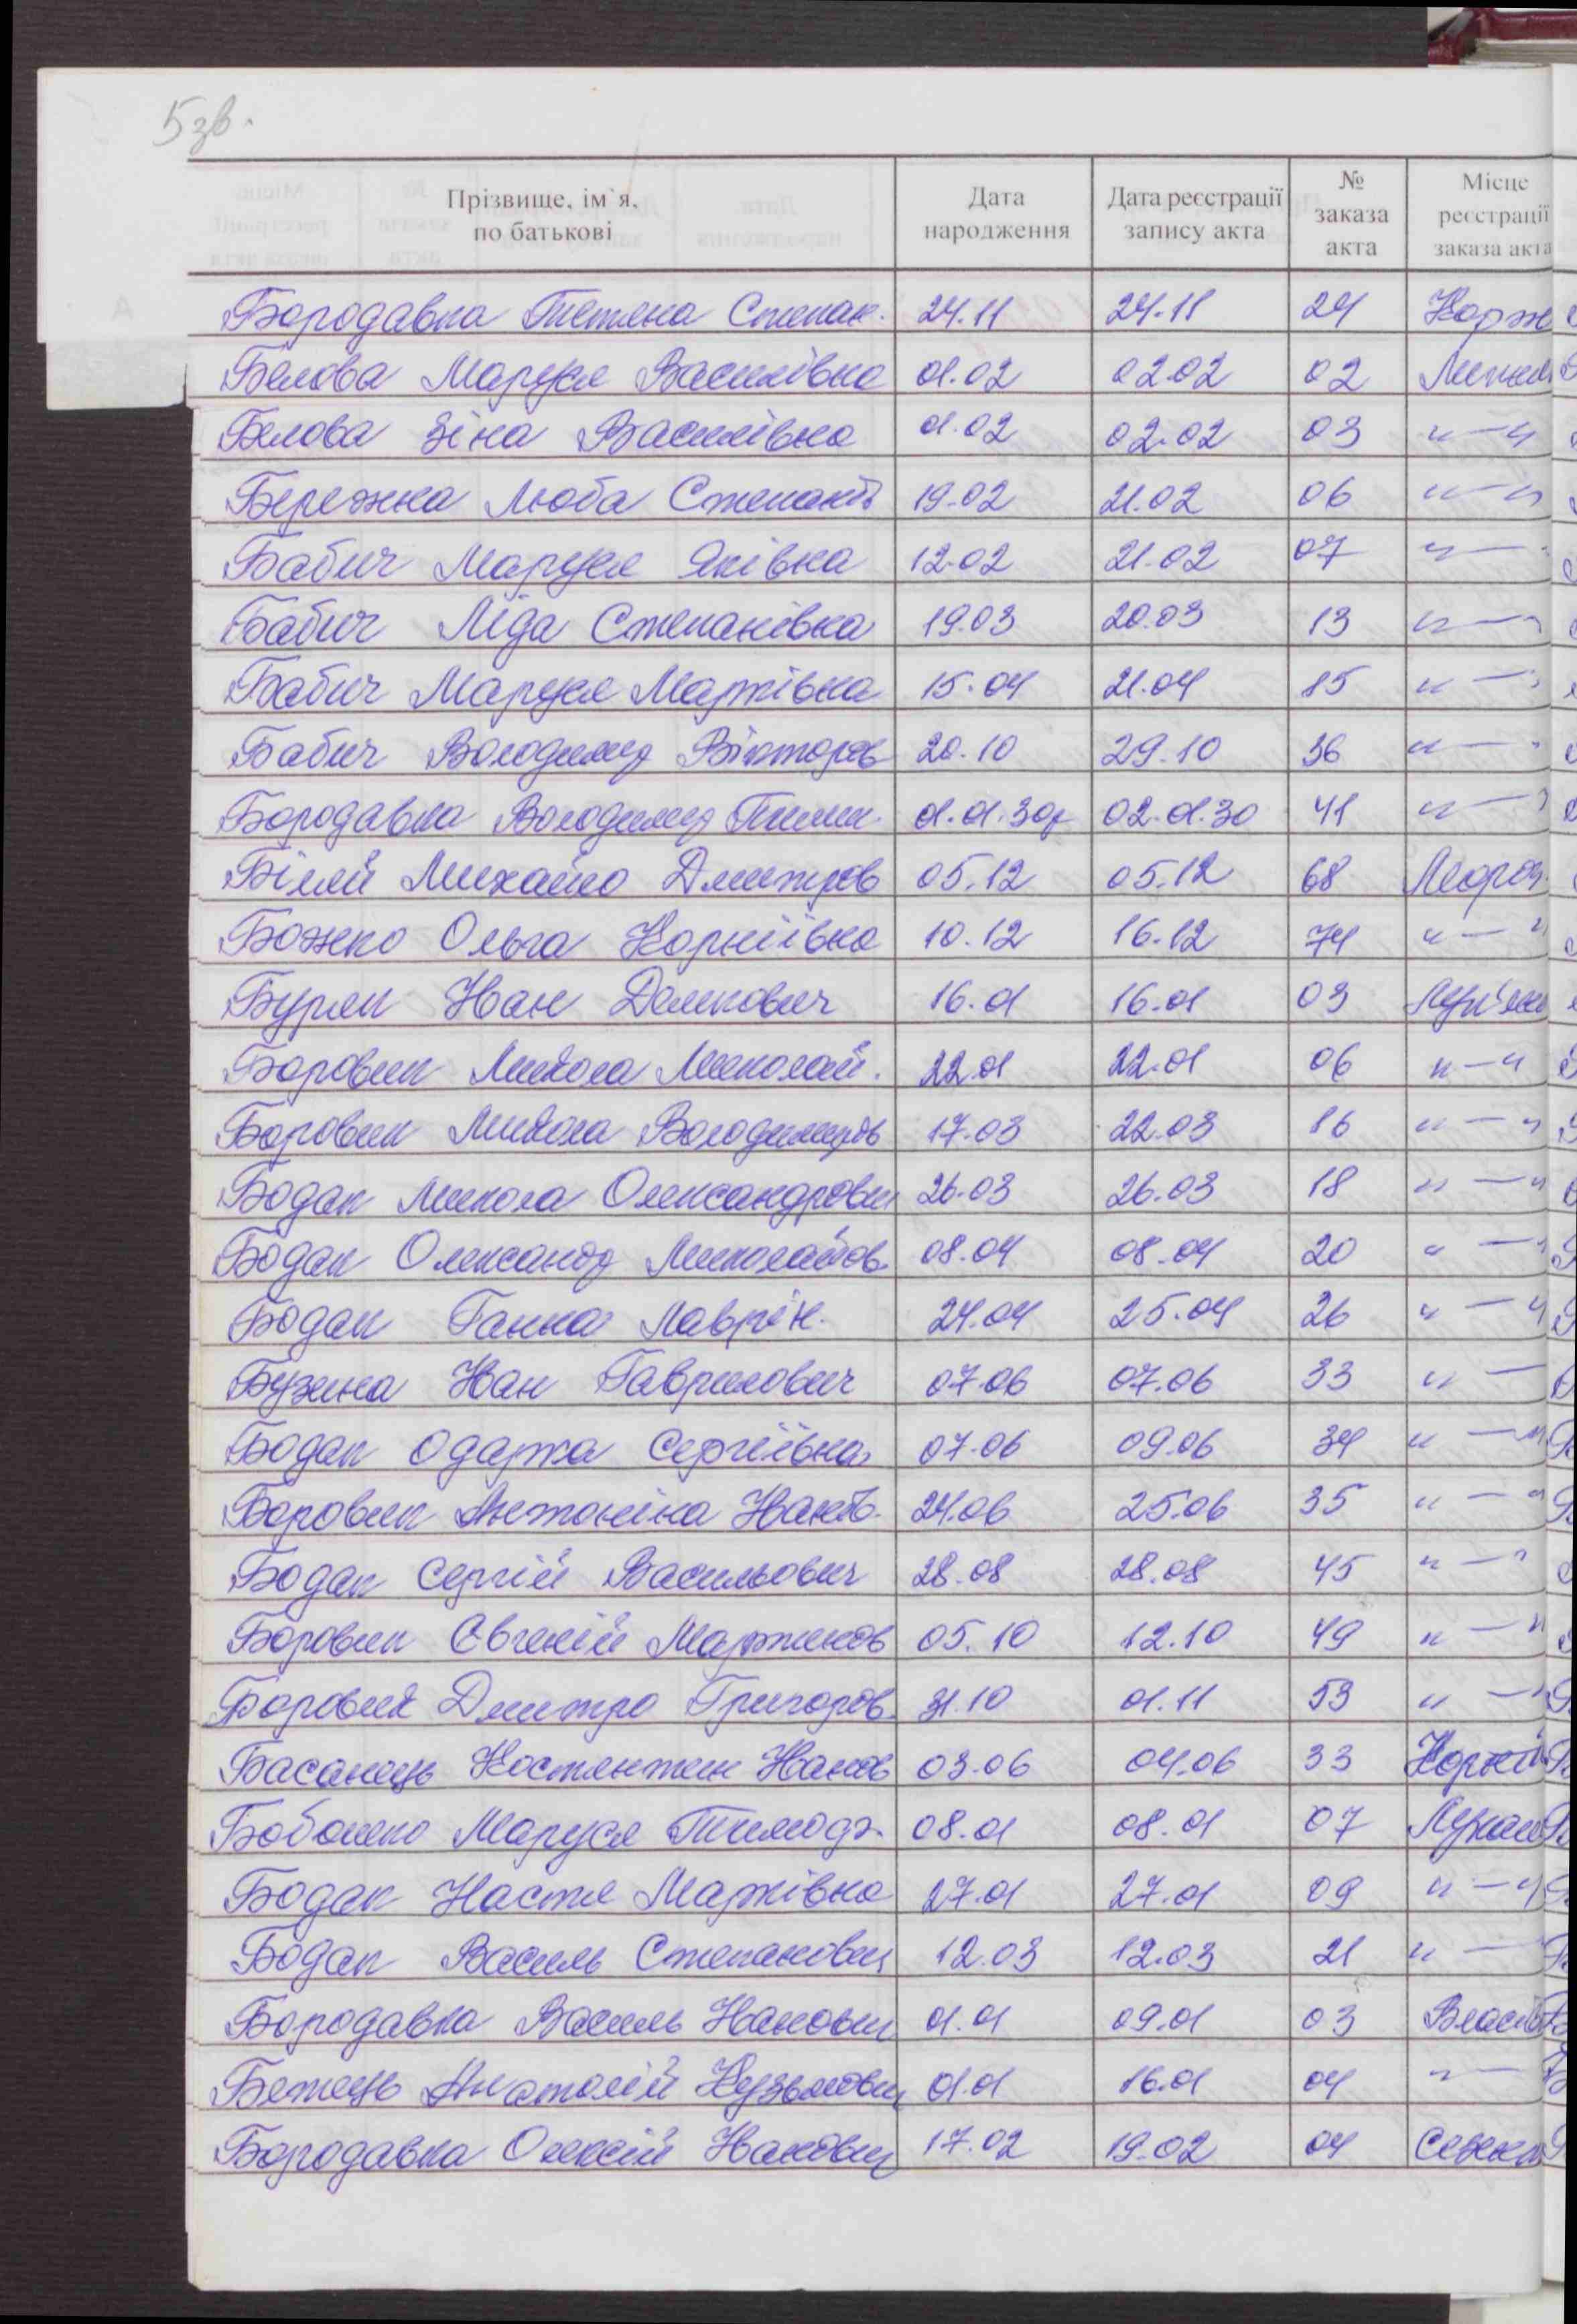 5 зв.
Прізвище, ім`я, по батькові Дата народження Дата реєстрації запису акта № заказа акта Місце реєстрації заказа акта
Бородавка Тетяна Степан. 24.11 24.11 24 Корж
Бєлова Маруся Василівна 01.02 02.02 02
Бєлова Зіна Василівна 01.02 02.02 03 "—"
Бережна Люба Степанів 19.02 21.02 06 "—"
Бабич Маруся Яківна 12.02 21.02 07 "—
Бабич Ліда Степанівна 19.03 20.03 13 "—"
Бабич Маруся Марківна 15.04 21.04 15 "—"
Бабич Володимир Вікторов 20.10 29.10 36 "—"
Бородавка Володимир 01.01.30р 02.01.30 41 "—"
Білий Михайло Дмитров 05.12 05.12 68
Божко Ольга Корніївна 10.12 16.12 74 "—"
Буряк Іван Демкович 16.01 16.01 03 Лук'ян
Боровик Микола Миколай. 22.01 22.01 06 "—"
Боровик Микола Володимиров 17.03 22.03 16 "—"
Бодак Микола Олександрови 26.03 26.03 18 "—"
Бодак Олександр Миколайов 08.04 08.04 20 "—"
Бодак Ганна Лаврін. 24.04 25.04 26 "—"
Бузина Іван Гаврилович 07.06 07.06 33 "—
Бодак Одарка Сергіївна 07.06 09.06 34 "—"
Боровик Антоніна Іванів. 24.06 25.06 35 "—"
Бодак Сергій Васильович 28.08 28.08 45 "—"
Боровик Євгеній Мартинов 05.10 12.10 49 "—"
Боровик Дмитро Григоров. 31.10 01.11 53 "—"
Басанець Костянтин Іванов 03.06 04.06 33 Корній
Бобошко Маруся Тимофз. 08.01 08.01 07 Лукаш
Бодак Настя Марківна 27.01 27.01 09 "—"
Бодак Василь Степанович 12.03 12.03 21 "—
Бородавка Василь Іванович 01.01 09.01 03 Власів
Анатолій Кузьмович 01.01 16.01 04 "—
Бородавка Олексій Іванович 17.02 19.02 04 Сеньк